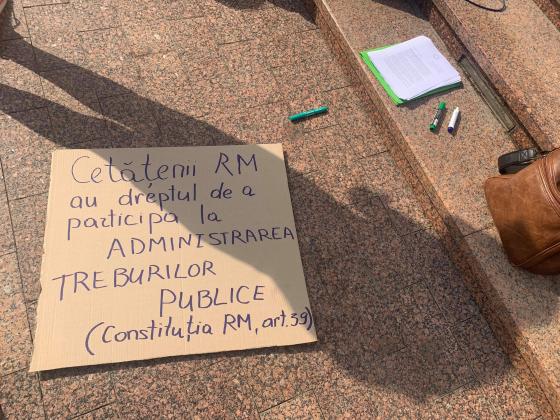 Cetățenii RM
au dreptul de a
participa la
ADMINISTRAREA
TREBURILOR
PUBLICE
(Constituția RM, art.39)